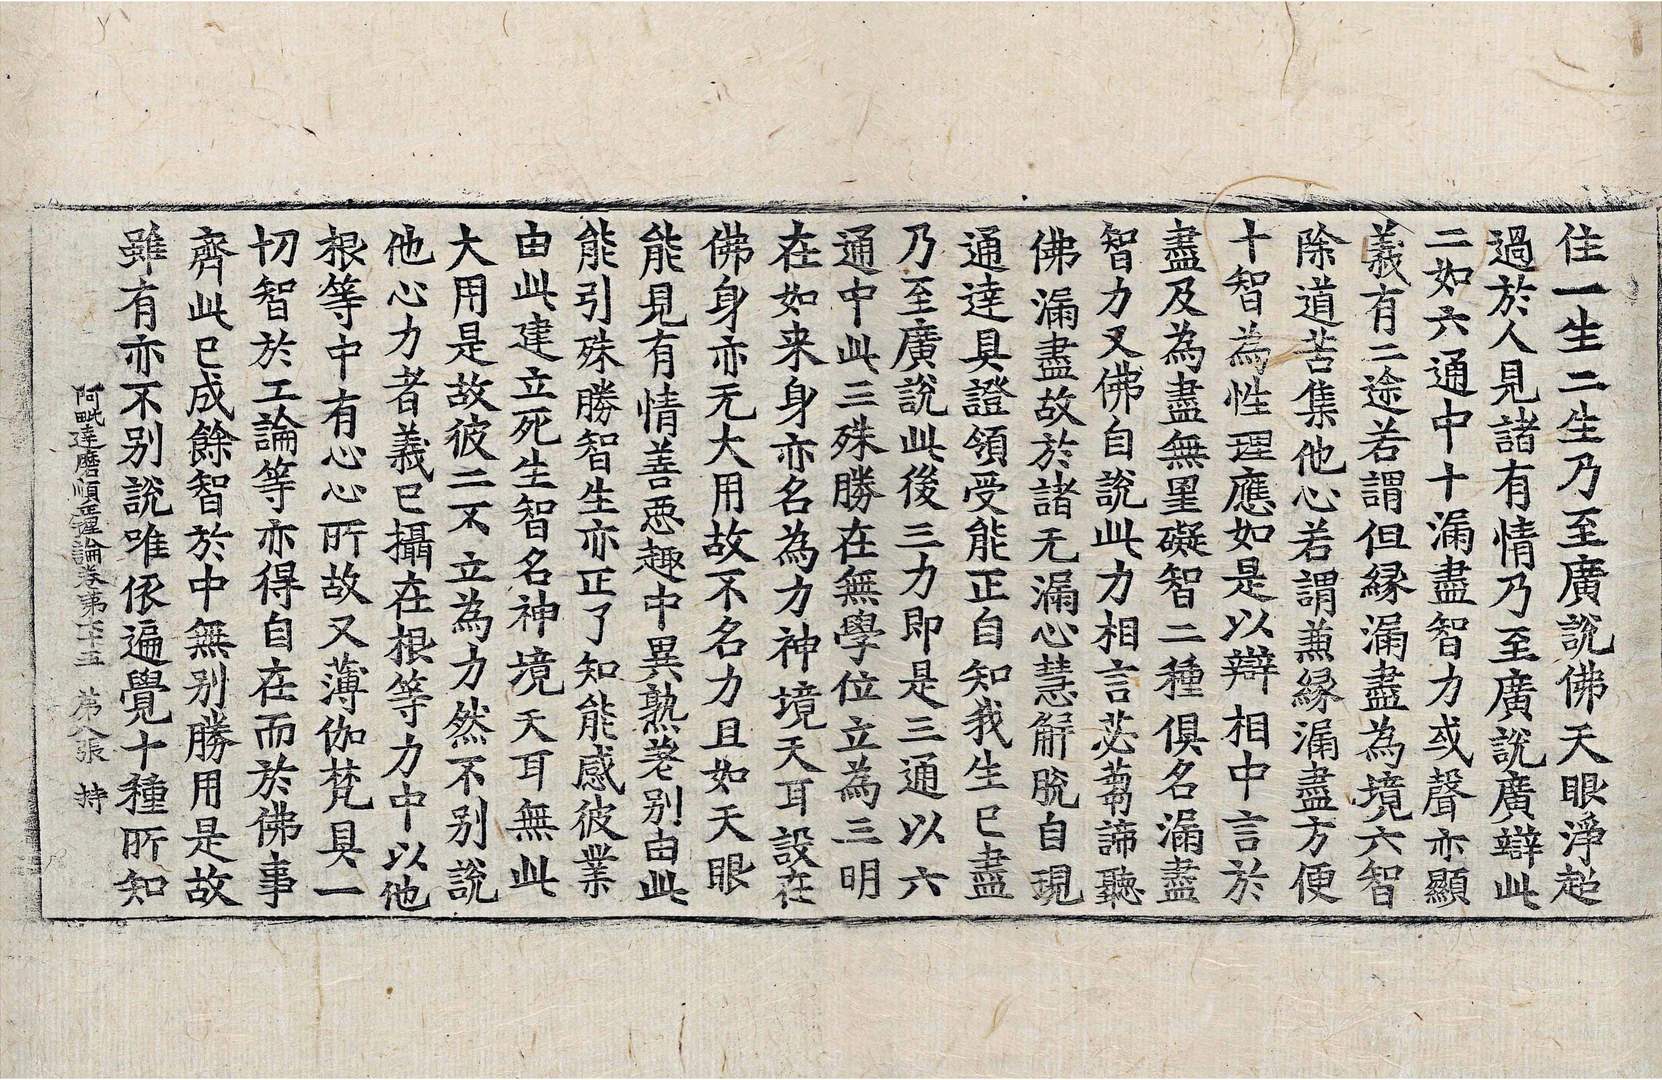 住一生二生乃至廣說佛天眼淨超
過於人見諸有情乃至廣說廣辯此
二如六通中十漏盡智力或聲亦顯
義有二途若謂但緣漏盡為境六智
除道苦集他心若謂兼緣漏盡方便
十智為性理應如是以辯相中言於
盡及為盡無罣礙智二種俱名漏盡
智力又佛自說此力相言苾蒭諦聽
佛漏盡故於諸无漏心慧解脫自現
通達具證領受能正自知我生已盡
乃至廣說此後三力即是三通以六
通中此三殊勝在無學位立為三明
在如来身亦名為力神境天耳設在
佛身亦无大用故不名力且如天眼
能見有情善惡趣中異熟差别由此
能引殊勝智生亦正了知能感彼業
由此建立死生智名神境天耳無此
大用是故彼二不立為力然不别說
他心力者義已攝在根等力中以他
根等中有心心所故又薄伽梵具一
切智於工論等亦得自在而於佛事
齊此已成餘智於中無别勝用是故
雖有亦不别說唯依遍覺十種所知
阿毗達磨順正理論卷第七十五 第八張 持